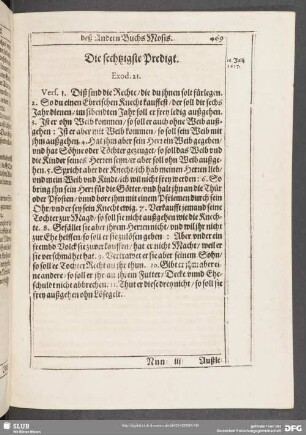 deß Andern Buchs Mosis.
469
Die sechtzigste Predigt.
Exod. 21.
Vers. 1. Diß sind die Rechte / die du jhnen solt fürlegen.
2. So du einen Ebreischen Knecht kauffest / der soll dir sechs
Jahr dienen / im sibendten Jahr soll er frey ledig außgehen.
3. Ist er ohn Weib kommen / so soll er auch ohne Weib auß-
gehen: Ist er aber mit Weib kommen / so soll sein Weib mit
jhm außgehen. 4. Hat jhm aber sein Herr ein Weib gegeben /
vnd hat Söhne oder Töchter gezeuget / so soll das Weib vnd
die Kinder seines Herren seyn / er aber soll ohn Weib außge-
hen. 5. Spricht aber der Knecht: ich hab meinen Herren lieb /
vnd mein Weib vnd Kind / ich will nicht frey werden: 6. So
bring jhn sein Herr für die Götter / vnd halt jhn an die Thür
oder Pfosten / vnnd bore jhm mit einem Pfriemen durch sein
Ohr / vnd er sey sein Knecht ewig. 7. Verkaufft jemand seine
Tochter zur Magd / so soll sie nicht außgehen wie die Knech-
te. 8. Gefället sie aber jhrem Herren nicht / vnd will jhr nicht
zur Ehe helffen / so soll er sie zu lösen geben: Aber vnder ein
frembd Volck sie zuverkauffen / hat er nicht Macht / weil er
sie verschmähet hat. 9. Vertrawet er sie aber seinem Sohn /
so soll er Tochter Recht an jhr thun. 10. Gibt er jhm aber ei-
ne andere / so soll er jhr an jhrem Futter / Decke vnnd Ehe-
schuld nicht abbrechen. 11. Thut er diese drey nicht / so soll sie
frey außgehen ohn Lösegelt.
Nnn iij
Außle-
SLUB
DFG